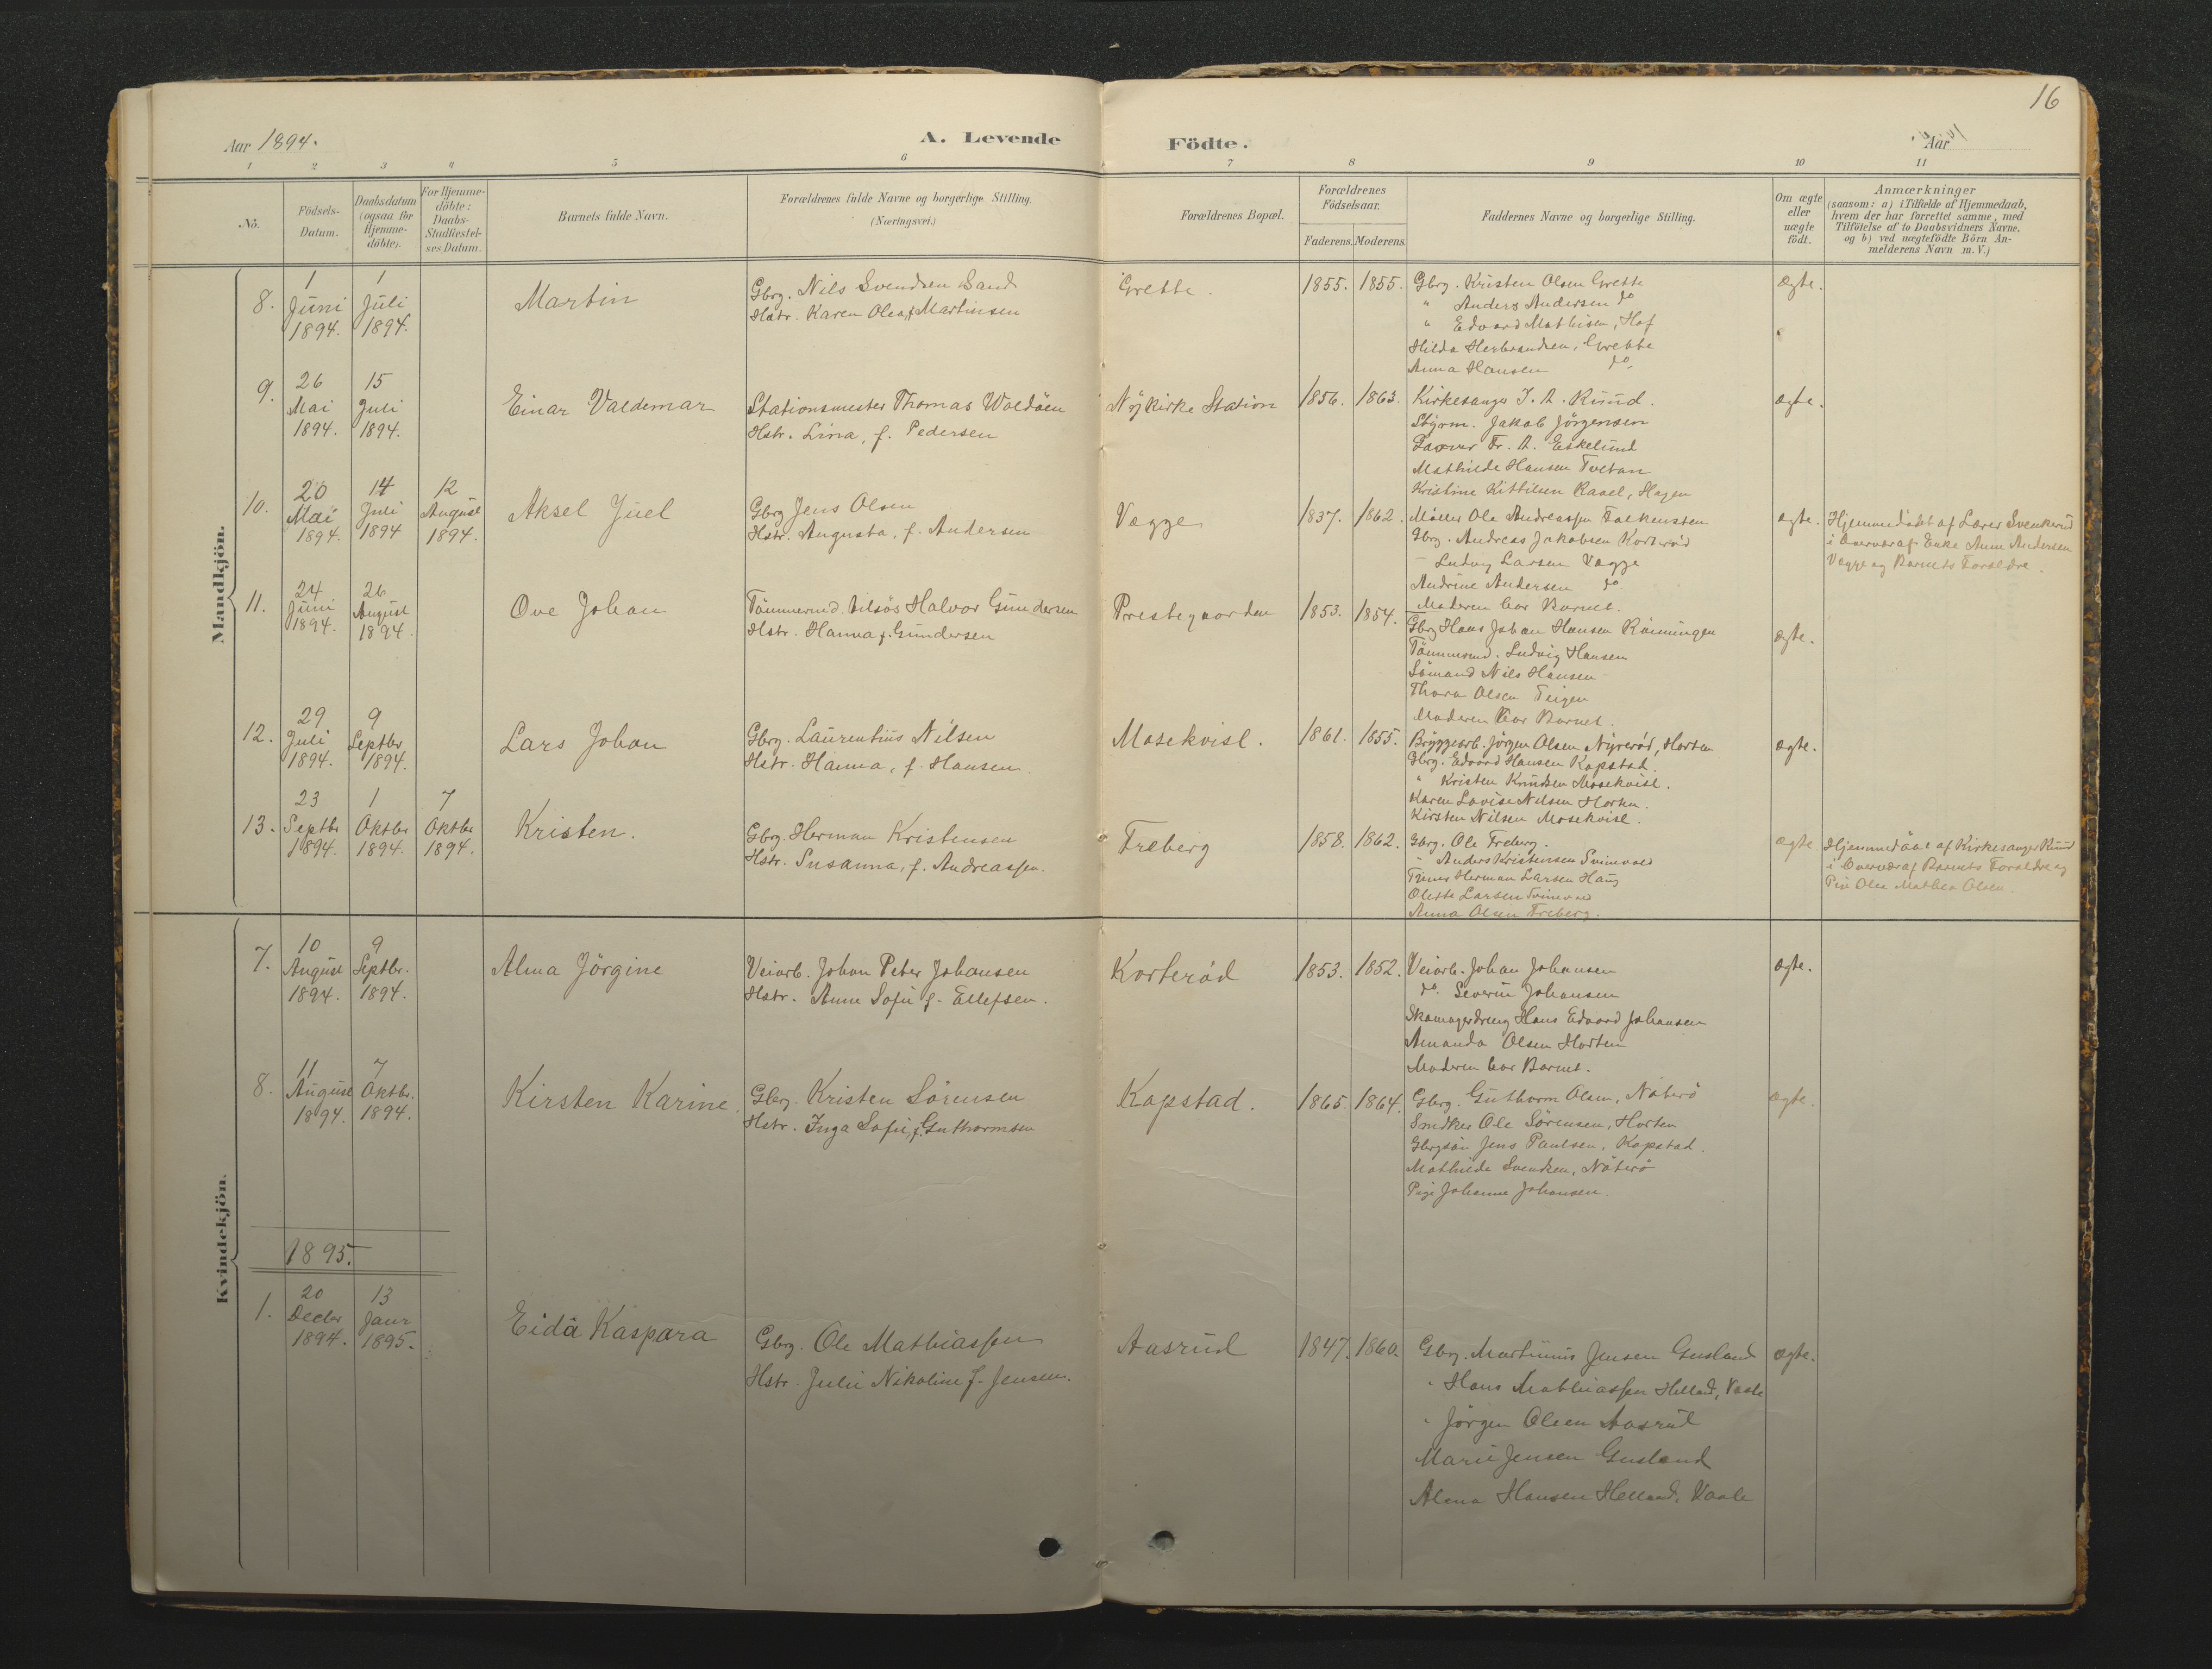 16
Aar 1894.
A. Levende
Födte.
Aar
1 2 3 4 5 6
7 8 9 10 11
No.
Födsels-
Datum.
Daabsdatum
(ogsaa for
Hjemme-
döbte).
For Hjemme-
döbte:
Daabs-
Stadfæstel-
ses Datum.
Barnets fulde Navn.
Forældrenes fulde Navne og borgerlige Stilling.
(Næringsvei.)
Forældrenes Bopæl.
Forældrenes
Födselsaar.
Faderens. Moderens.
Faddernes Navne og borgerlige Stilling.
Om ægte
eller
uægte
födt.
Anmærkninger
(saasom: a) i Tilfælde af Hjemmedaab,
hvem der har forrettet samme, med
Tilföielse af to Daabsvidners Navne,
og b) ved uægtefödte Börn An-
melderens Navn m. V.)
Mandkjön.
8.
1
Juni
1894.
1
Juli
1894.
Martin
Gbrg. Nils Svendsen Sand
Hstr. Karen Olea f. Martinsen
Grette.
1855. 1855.
Gbrg. Kristen Olsen Grette
" Anders Andersen do
" Edvard Mathisen, Hof
Hilda Herbrandsen, Grette
Anna Hansen do.
ægte.
9.
26
Mai
1894.
15
Juli
1894.
Einar Valdemar
Stationsmester Thomas Woldöen
Hstr. Lina, f. Pedersen
Nÿkirke Station
1856. 1863.
Kirkesanger J. A. Ruud.
Styrm. Jakob Jörgensen
Fr. A. Eskelund
Mathilde Hansen Tveten
Kristine Kittilsen Ravel, Hagen
ægte.
10.
20
Mai
1894.
14
Juli
1894
12
August
1894.
Aksel Juel
Gbrg Jens Olsen
Hstr. Augusta, f. Andersen
Vægge
1837. 1862.
Möller Ole Andreassen Falkensten
Gbrg. Andreas Jakobsen Korteröd
— Ludvig Larsen Vægge
Andrine Andersen do
Moderen bar Barnet.
ægte.
Hjemmedöbt af Lærer Svenkerud
i Overvær af Enke Anne Andersen
Vægge og Barnets Forældre.
11.
24
Juni
1894.
26
August
1894.
Ove Johan
Tömmermd. Halvor Gundersen
Hstr. Hanna f. Gundersen
Prestegaarden
1853. 1854.
Gbrg Hans Johan Hansen Rönningen
Tömmermd. Ludvig Hansen
Sömand Nils Hansen
Thora Olsen Teigen
Moderen bar Barnet.
ægte.
12.
29
Juli
1894.
9
Septbr
1894.
Lars Johan
Gbrg. Laurentius Nilsen
Hstr. Hanna, f. Hansen.
Mosekvisl.
1861. 1855.
Bryggearb. Jörgen Olsen Nyreröd, Horten
Gbrg. Edvard Hansen Kopstad.
" Kristen Knudsen Mosekvisl.
Karen Lovise Nilsen Horten.
Kirsten Nilsen Mosekvisl.
ægte.
13.
23
Septbr
1894.
1
Oktbr
1894.
7
Oktbr
1894.
Kristen.
Gbrg. Herman Kristensen
Hstr. Susanna, f. Andreassen.
Freberg
1858. 1862.
Gbrg. Ole Freberg.
" Anders Kristensen Svinevold
Herman Larsen Haug
Olette Larsen Svinevold
Anna Olsen Freberg.
ægte
Hjemmedöbt af Kirkesanger Ruud
i Overvær af Barnets Forældre og
Pige Olea Mathea Olsen.
Kvindekjön.
7.
10
August
1894.
9
Septbr.
1894.
Alma Jörgine
Veiarb. Johan Peter Johansen
Hstr. Anne Sofie f. Ellefsen.
Korteröd
1853. 1852.
Veiarb. Johan Johansen
do. Severin Johansen
Skomagerdreng Hans Edvard Johansen
Amanda Olsen Horten
Moderen bar Barnet.
ægte.
8.
11
August
1894.
7
Oktbr.
1894.
Kirsten Karine.
Gbrg. Kristen Sörensen
Hstr. Inga Sofie, f. Guthormsen
Kopstad.
1865. 1864.
Gbrg. Guthorm Olsen, Nöterö
Snedker Ole Sörensen, Horten
Gbrgsön Jens Paulsen, Kopstad.
Mathilde Svendsen, Nöterö
Pige Johanne Johansen.
ægte.
1895.
1.
20
Decbr
1894.
13
Janr
1895.
Eida Kaspara
Gbrg. Ole Mathiassen
Hstr. Julie Nikoline f. Jensen.
Aasrud
1847. 1860.
Gbrg. Martinius Jensen Gusland
" Hans Mathiassen Helland, Vaale
" Jörgen Olsen Aasrud
Marie Jensen Gusland
Alma Hansen Helland, Vaale
ægte.